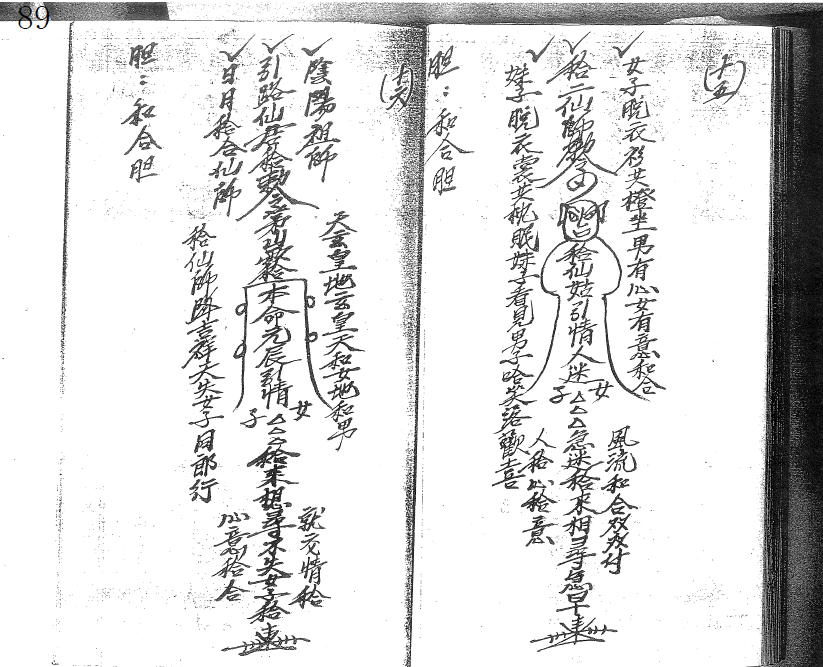 89
十五
女子脫衣衫共橙坐男有心女有意和合
風流和合双双付
和二仙師敕令
和仙姑引情人迷
女子
△△急迷和來相尋急早來
妹子脫衣裳共枕眠妹子看見男子哈笑洛歡喜
人和心和意
胆：和合胆
十六
陰陽祖師
天玄皇地玄皇天和女地和男
就交情和
引路仙君和勅令
本命元辰引情
女子
△△
和來想尋不失女子和來
日月和合仙師
和仙師降吉祥夫失女子同郎行
心意和合
胆：和合胆